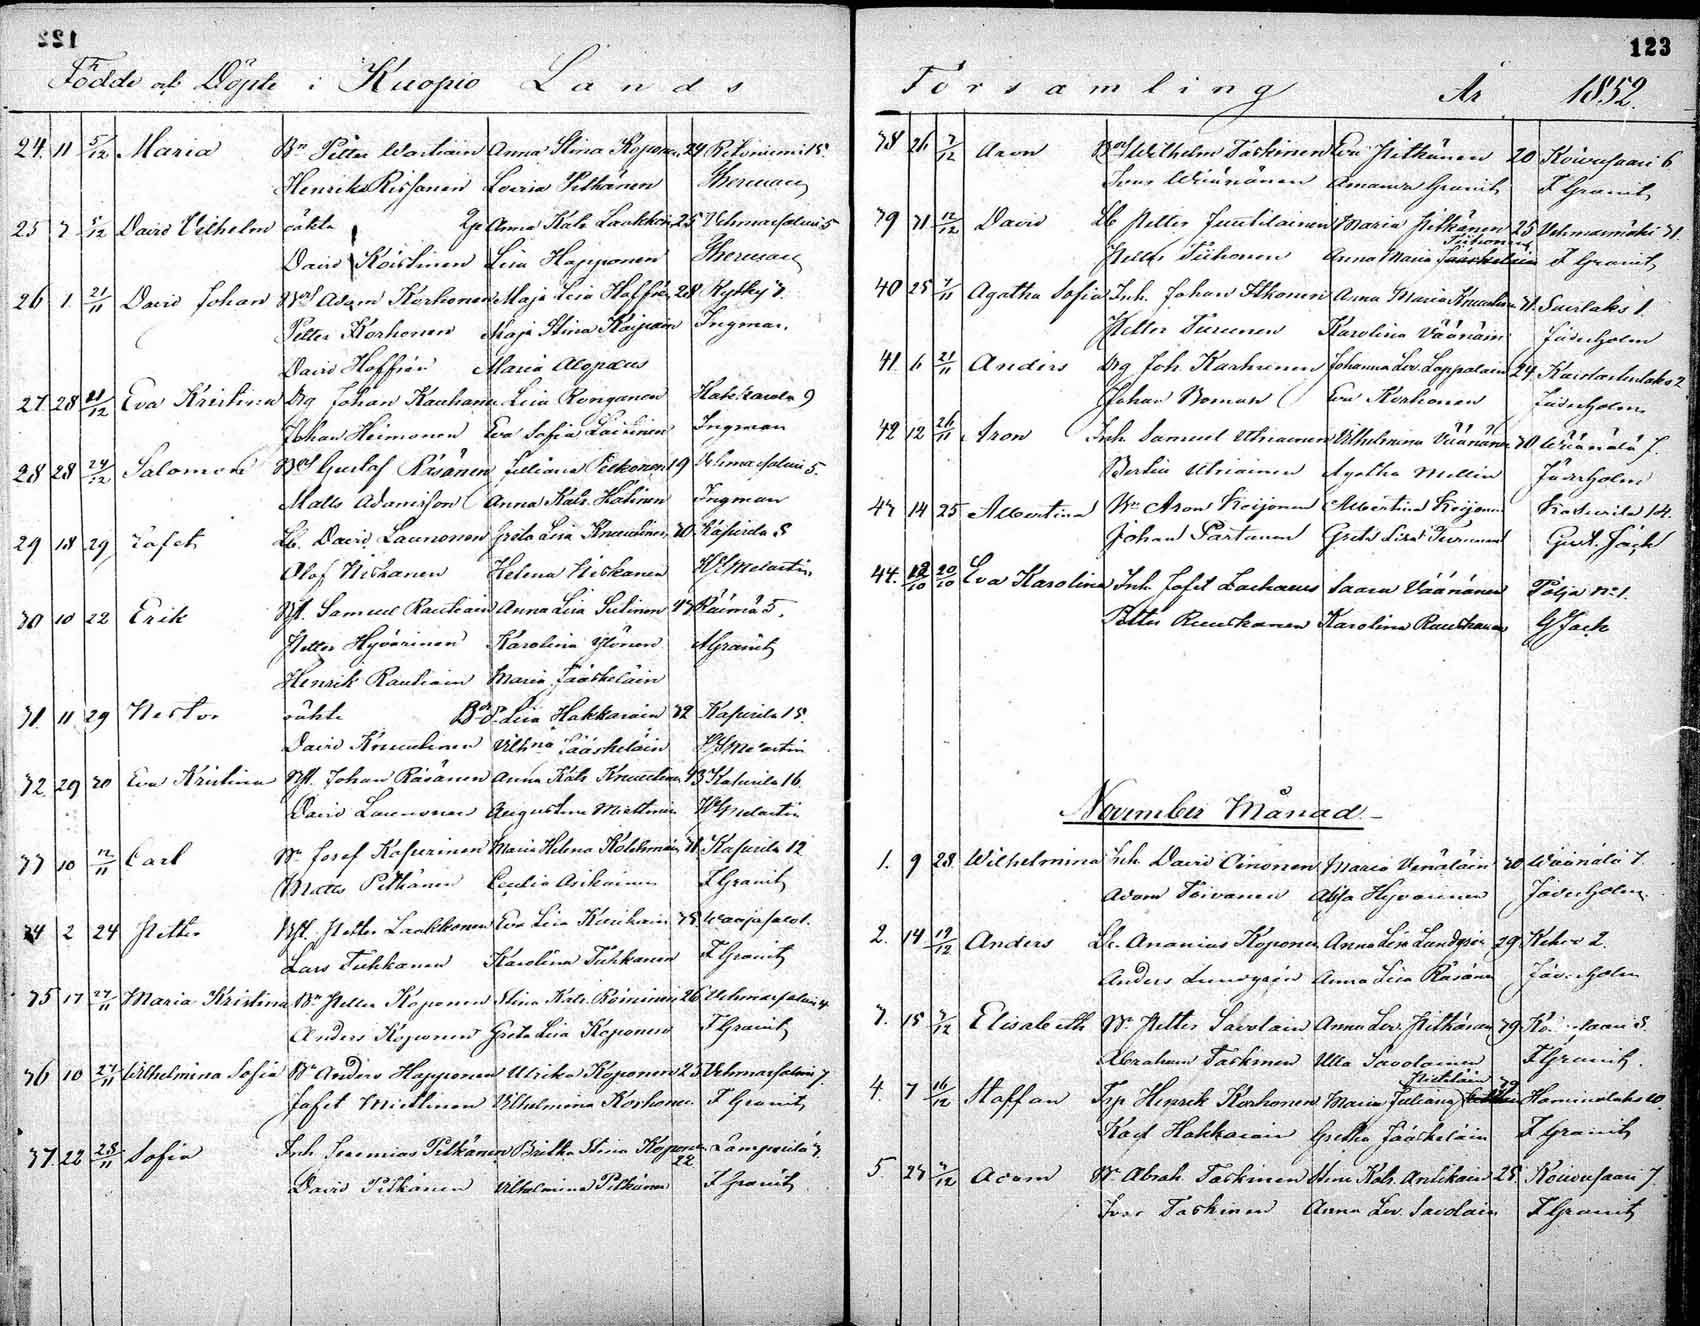 122
Födde och Döpte i Kuopio Lands
24. 11 5/12 Maria Bn Petter Wartiain Anna Stina Koponen 24 Ritoniemi 15.
Henrik Rissanen Lovisa Pitkänen
25 7 5/12 David Vilhelm oäkta Anna Kats Laakkon 25 Vehmasjalmi 5
David Koistinen Lisa Happonen
26 1. 21/11 David Johan Adam Korhonen Maja Lisa Hoffrén 28 Rytky 7.
Petter Korhonen Maja Stina Ingman.
David Hoffrén Maria Alopæus
27 28 21/12 Eva Kristina Johan Kauhanen Lisa Ronganen 9
Johan Heimonen Eva Sofia Ingman
28 28 24/12 Salomon Gustaf Räsänen Juliana Pekonen 19 5.
Matts Adamsson Anna Kats. Ingman
29 18 29 Jafet Lb. David Launonen Greta Lisa Knuutinen 30 Kasurila 8
Olof Niskanen Helena Niskanen Melartin
30 10 22 Erik Samuel Rautiain Anna Lisa Sutinen 43 Räimä 5.
Petter Hyvärinen Karolina Ylönen Granit
Henrik Rautiain Maria Jääskeläin
31. 11 29 Nestor oäkta Lisa Hakkarain 32 Kasurila 15.
David Knuutinen Vilhna Jääskeläin Melartin
32. 29 30 Eva Kristina Johan Räsänen Anna Kats Knuutinen 43 Kasurila 16.
David Launonen Augustina Miettinen Melartin
33 10 12/11 Carl Bn Josef Kasurinen Maria Helena Kolehmain 31 Kasurila 12
Matts Pitkänen Cecilia Asikainen F Granit
34 2 24 Petter Petter Laakkonen Eva Lisa
Lars Tuhkanen Karolina Tuhkanen F Granit
35 17 27/11 Maria Kristina Bn Petter Koponen Stina Kats. 26 Vehmasjalmi 4.
Anders Koponen Greta Lisa Koponen F Granit
36 10 27/11 Wilhelmina Sofia Bn Anders Happonen Ulrika Koponen 25 Vehmasjalmi 7.
Jafet Miettinen Vilhelmina Korhonen F Granit
37 22 28/11 Sofia Inh Jeremias Pitkänen Britha Stina Koponen Lamperila 3
22
David Pitkänen Vilhelmina Pitkänen F Granit
123
Församling År 1852.
38 26 7/12 Aron Wilhelm Taskinen Eva Pitkänen 20 Koivusaari 6
Ivar Väänänen Amanda Granit F Granit
39 31 12/12 David Lb Petter Juutilainen Maria Pitkänen 25 Vehmasmäki 31.
Tiihonen
Petter Tiihonen Anna Maria F Granit
40 25 7/11 Agatha Sofia Inh. Johan Itkonen Anna Maria Knuutinen 31. Savilaks 1.
Petter Turunen Karolina Väänäin Jäderholm
41. 6 21/11 Anders Joh. Karhunen Johanna Lov. Lappalain 24
Johan Boman Eva Korhonen Jäderholm
42 12 26/11 Aron Inh Samuel Utriainen Vilhelmina Väänänen 30 Väänälä 7.
Utriainen Agatha Mellin Jäderholm
43 14 25 Albertina Bn Aron Keijonen Albertina Keijonen Kasurila 14.
Johan Partanen Greta Lisa Turunen Gust. Jack
44. 12/10 20/10 Eva Karolina Inh Jafet Zachæus Saara Väänänen Pöljä No 1.
Petter Ruuskanen Karolina Ruuskanen G Jack
November Månad
1. 9 28 Wilhelmina Inh. David Oinonen Maria Venäläin 30 Väänälä 7.
Adam Toivanen Hyvärinen Jäderholm
2. 14 19/12 Anders Lb. Ananias Koponen Anna Lisa Lundgrén 29 Kehvo 2.
Anders Lundgrén Anna Lisa Räsänen Jäderholm
3. 15 7/12 Elisabeth Bn Petter Savolain Anna Lov. Pitkänen 39
Abraham Taskinen Ulla Savolainen F Granit.
4. 7 16/12 Staffan Trp Henrik Korhonen Maria Juliana Haminalaks 10.
Karl Hakkarain Gretha Jääskeläin F Granit
5. 23 7/12 Adam Bn Abrah Taskinen Stina Kats. Antikain 28. Koivusaari 7.
Ivar Taskinen Anna Lov. Savolain F Granit